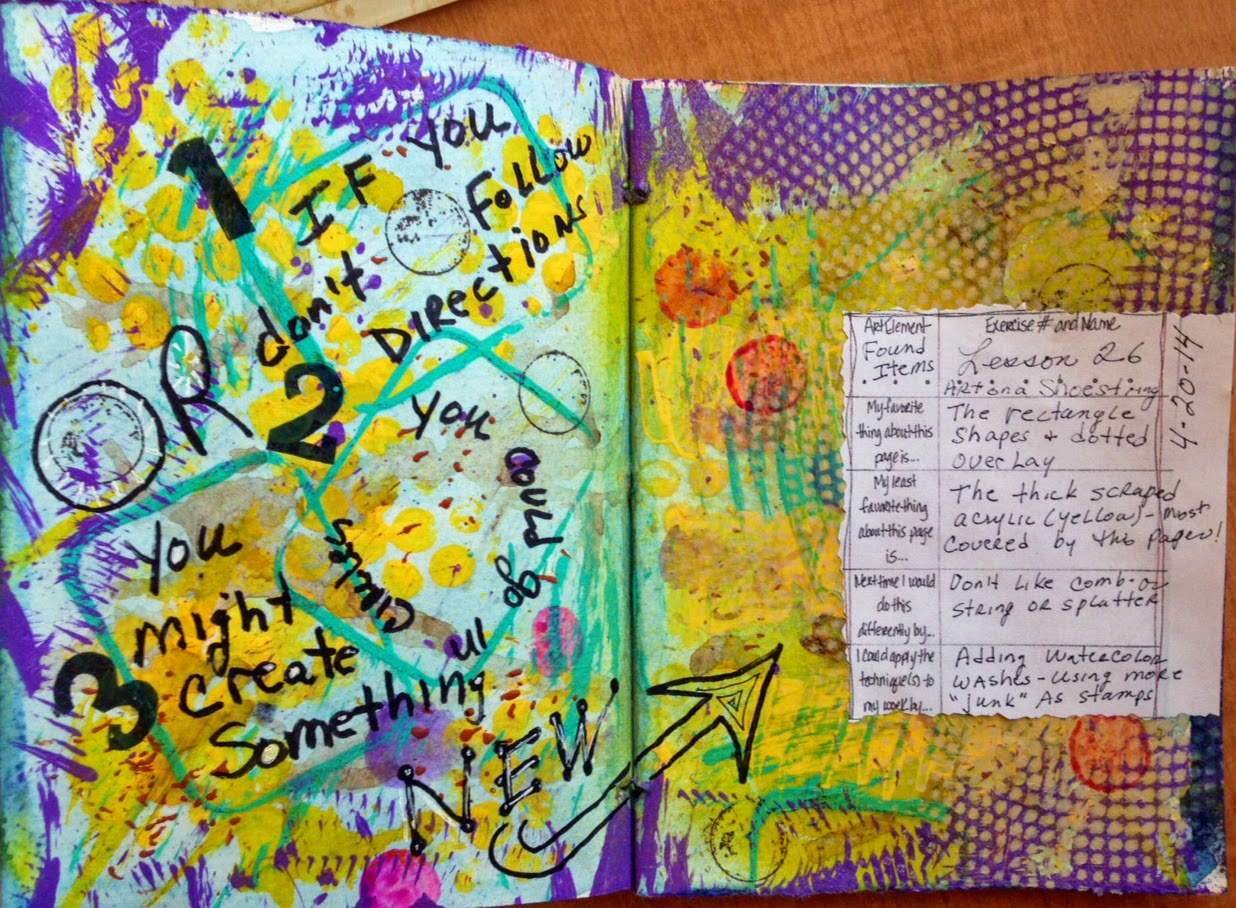 1
If you
don't follow
directions
2
You
could
go
in
circles
OR
3
You
might
create
something
NEW
Art Element
Found
Items
Exercise # and Name
Lesson 26
Art on a Shoestring
4-20-14
My favorite
thing about this
page is...
The rectangle
shapes + dotted
overlay
My least
favorite thing
about this page
is...
The thick scraped
acrylic (yellow) - most
covered by this paper!
Next time I would
do this
differently by...
Don't like comb-or
string or splatter
I could apply the
technique(s) to
my work by...
Adding watercolor
washes - using more
"junk" As stamps